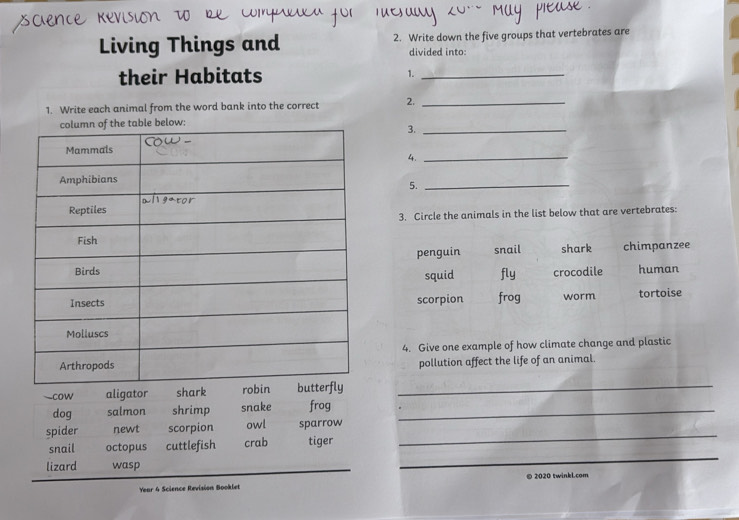 Science Revision to be completed for Tuesday 20th May please.
Living Things and
their Habitats
1. Write each animal from the word bank into the correct
column of the table below:
Mammals cow -
Amphibians
Reptiles aligator
Fish
Birds
Insects
Molluscs
Arthropods
cow aligator shark robin butterfly
dog salmon shrimp snake frog
spider newt scorpion owl sparrow
snail octopus cuttlefish crab tiger
lizard wasp
Year 4 Science Revision Booklet
2. Write down the five groups that vertebrates are
divided into:
1.
2.
3.
4.
5.
3. Circle the animals in the list below that are vertebrates:
penguin snail shark chimpanzee
squid fly crocodile human
scorpion frog worm tortoise
4. Give one example of how climate change and plastic
pollution affect the life of an animal.
© 2020 twinkl.com